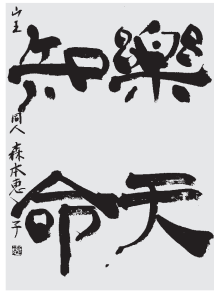 樂天
知命
山王 同人 森本恵子